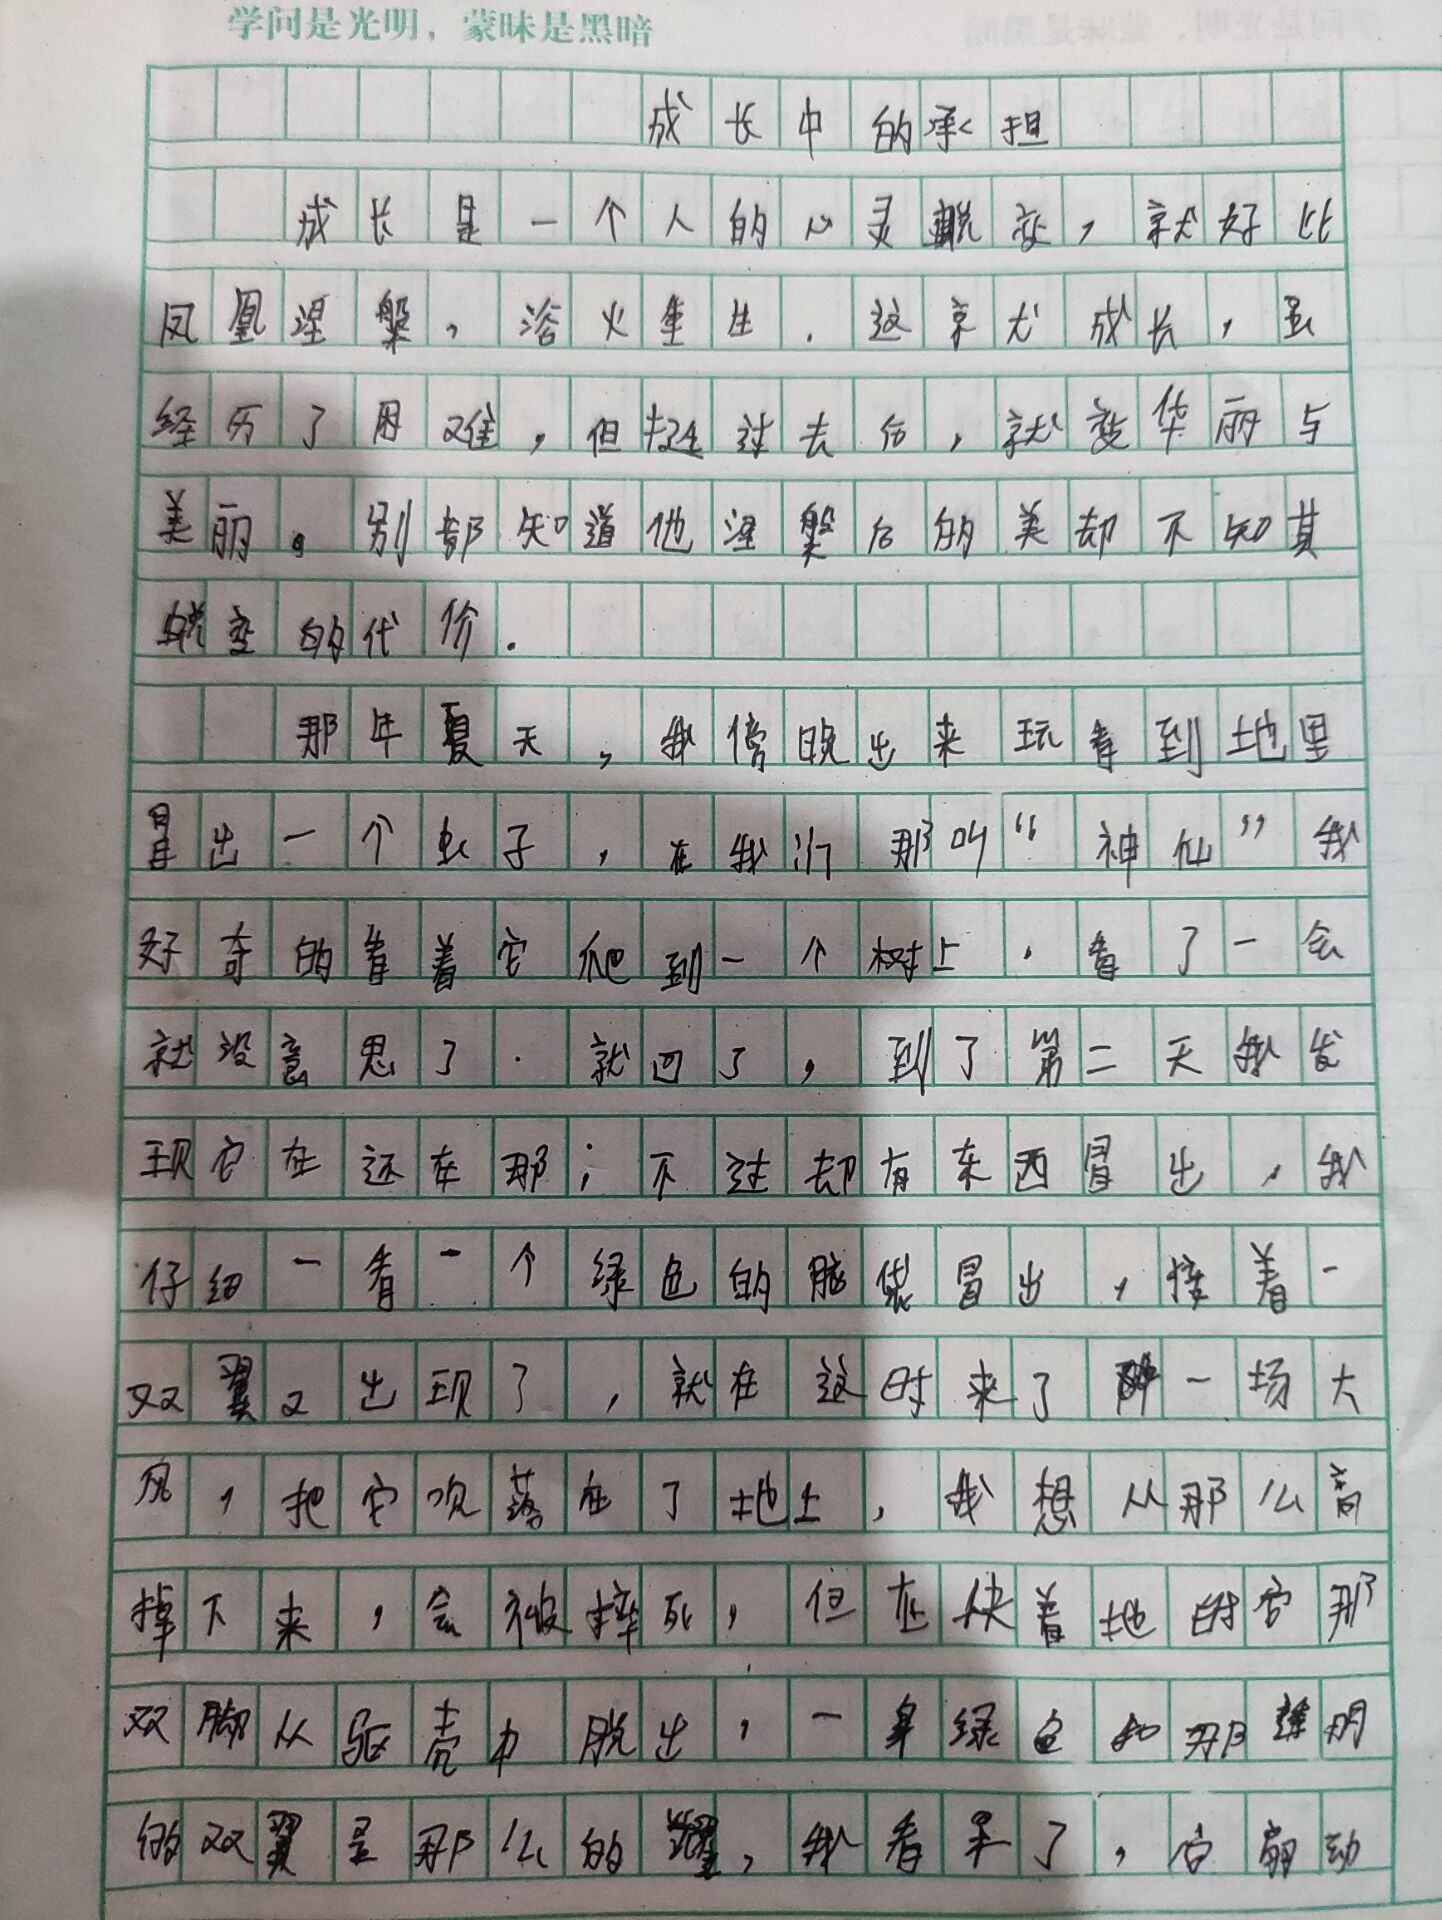 学问是光明，蒙昧是黑暗
成长中的承担
成长是一个人的心灵蜕变，就好比
凤凰涅槃，浴火重生．这就成长，虽
经历了困难，但挺过去后，就变华丽与
美丽。别都知道他涅槃后的美却不知其
蜕变的代价．
那年夏天，我傍晚出来玩看到地里
冒出一个虫子，在我们那叫“神仙”我
好奇的看着它爬到一个树上．看了一会
就没意思了．就回了，到了第二天我发
现它在还在那；不过却有东西冒出，我
仔细一看一个绿色的脑袋冒出，接着一
双翼又出现了，就在这时来了一场大
风，把它吹落在了地上，我想从那么高
掉下来，会被摔死，但在快着地时它那
双脚从驱壳中脱出，一身绿色和那透明
的双翼是那么的耀，我看呆了，它扇动